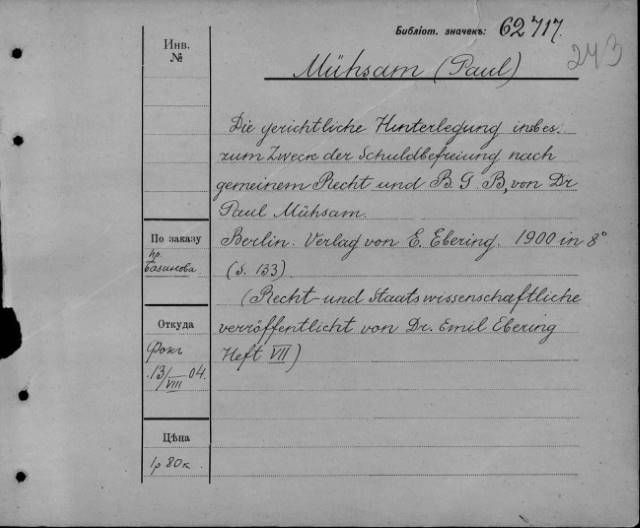 Библіот. значекъ: 62717.
243
Инв.
№
Mühsam (Paul)
Die gerichtliche Hinterlegung insbes.
zum Zweck der Schuldbefreiung nach
gemeinem Recht und B. G. B, von Dr
Paul Mühsam.
По заказу
пр.
Базанова
Berlin. Verlag von E. Ebering. 1900 in 8°
(S. 133)
(Recht- und Staatswissenschaftliche
Откуда
verröffentlicht von Dr. Emil Ebering
Фокъ
Heft VII)
13/VIII 04.
Цѣна
1р 80к.